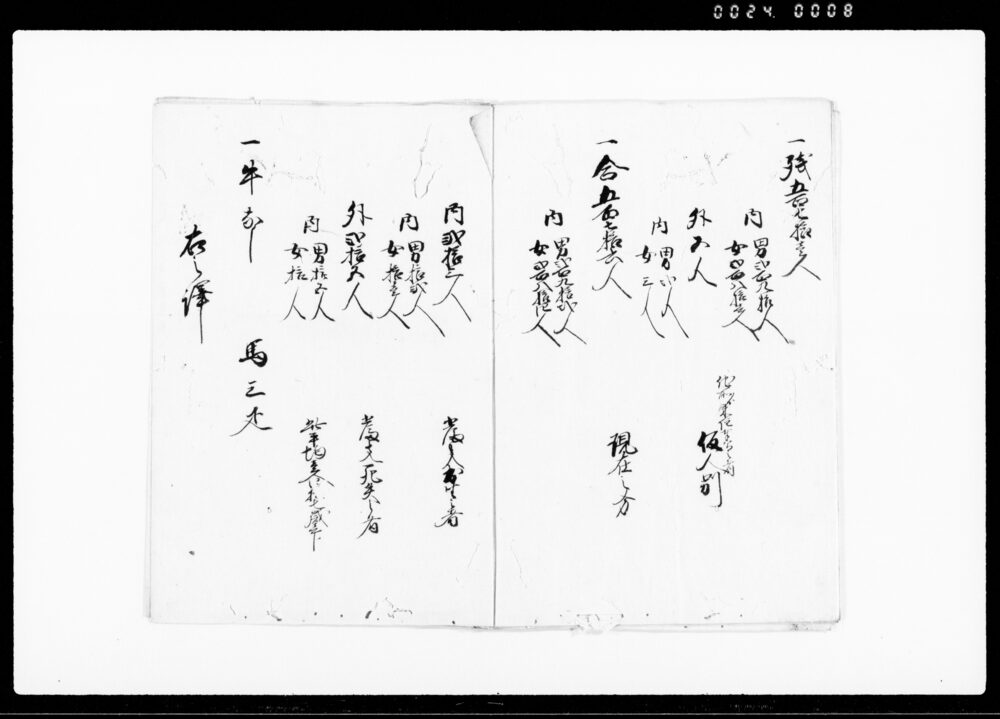 0024 0008
一残五百七拾壱人
内 男弐百九拾人
女弐百八拾壱人
外五人
仮人別
内 男弐人
女三人
一合五百七拾六人
現在之方
内 男弐百九拾弐人
女弐百八拾四人
内弐拾三人
出生之者
内 男拾弐人
女拾壱人
外弐拾五人
死失之者
内 男拾五人
女拾人
一牛なし
馬三疋
右之譯